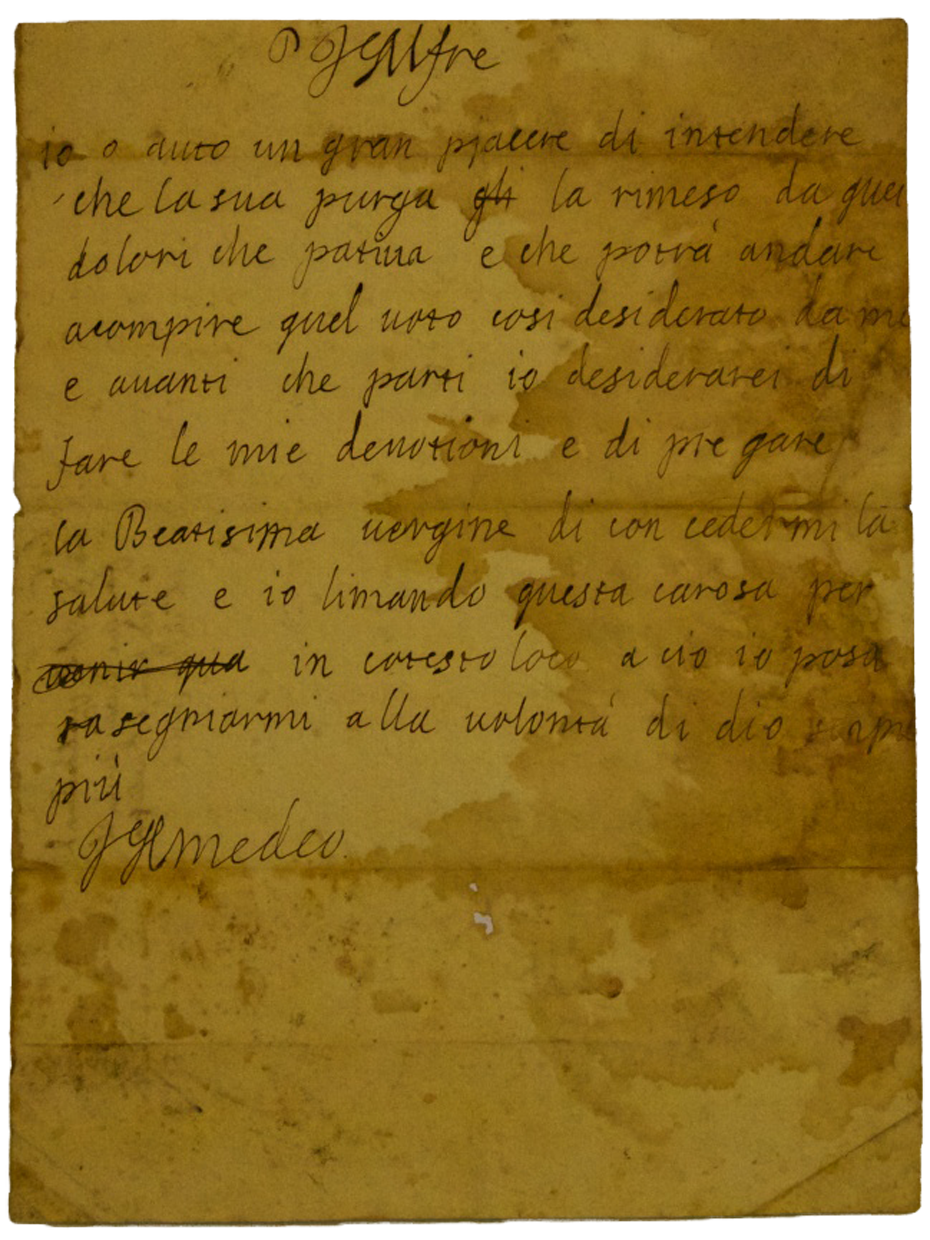 io o auto un gran piacere di intendere
che la sua purga gli la rimeso da quei
dolori che patiua e che potrà andare
acompire quel uoto cosi desiderato da me
e auanti che parti io desiderarei di
fare le mie deuotioni e di pregare
la Beatisima uergine di con cedermi la
salute e io limando questa carosa per
uenir qua in cotesto loco acio io posa
rasegniarmi alla uolontà di dio
più
Amedeo